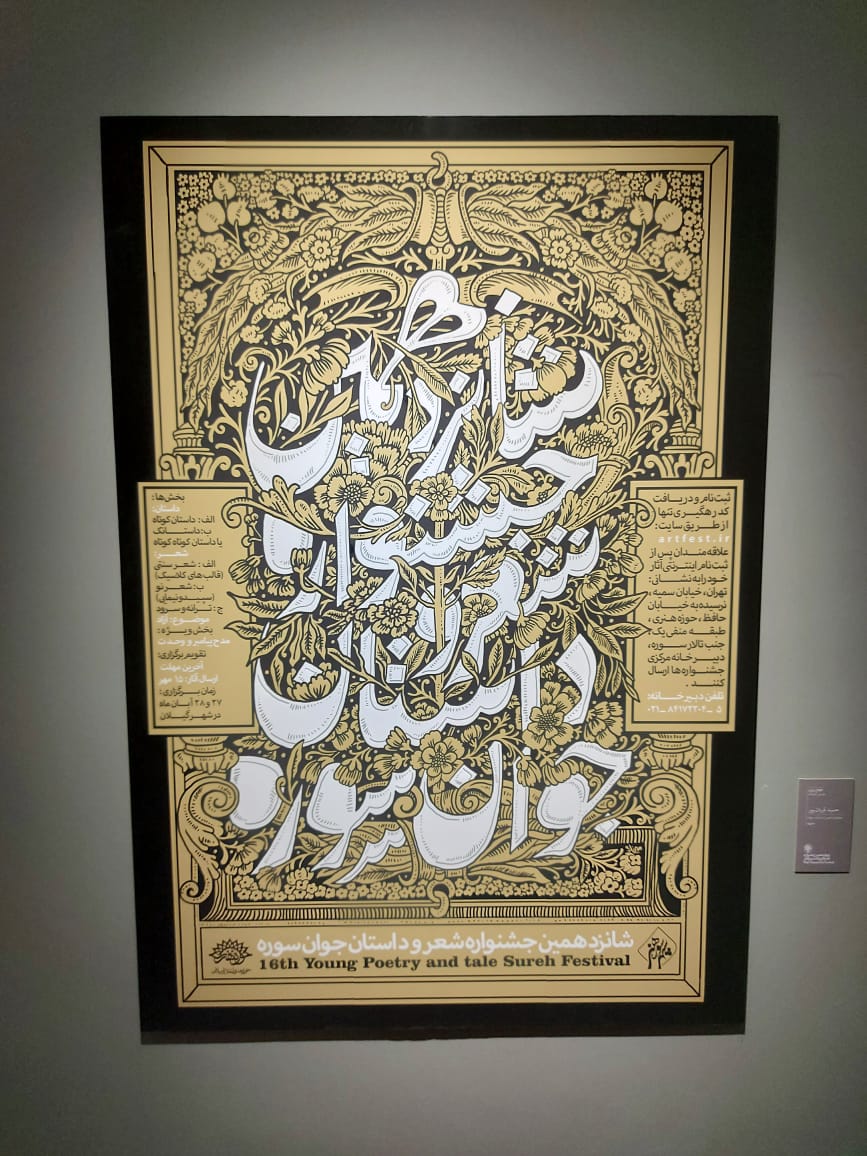 شانزدهمین
جشنواره
شعر و
داستان
جوان سوره
ثبت‌نام و دریافت
کد رهگیری تنها
از طریق سایت:
artfest.ir
علاقه‌مندان پس از
ثبت‌نام اینترنتی آثار
خود را به نشانی:
تهران، خیابان سمیه،
نرسیده به خیابان
حافظ، حوزه هنری،
طبقه منفی یک،
جنب تالار سوره،
دبیرخانه مرکزی
جشنواره‌ها ارسال
کنند.
تلفن دبیرخانه:
۰۲۱ـ۸۴۱۷۲۲۰۴ـ۵
بخش‌ها:
داستان:
الف: داستان کوتاه
ب: داستانک
یا داستان کوتاه کوتاه
شعر:
الف: شعر سنتی
(قالب‌های کلاسیک)
ب: شعر نو
(سپید و نیمایی)
ج: ترانه و سرود
موضوع: آزاد
بخش ویژه:
مدح پیامبر و وحدت
تقویم برگزاری:
آخرین مهلت
ارسال آثار: ۱۵ مهر
زمان برگزاری:
۲۷ و ۲۸ آبان ماه
در شهر گیلان
شانزدهمین جشنواره شعر و داستان جوان سوره
16th Young Poetry and tale Sureh Festival
حوزه هنری